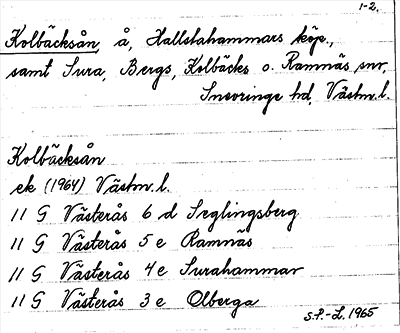 1-2.
Kolbäcksån, å, Hallstahammars köp.,
samt Sura, Bergs, Kolbäcks o. Ramnäs snr,
Snevringe hd, Västm. l.
Kolbäcksån
ek (1964) Västm. l.
11 G Västerås 6 d Seglingsberg
11 G Västerås 5 e Ramnäs
11 G Västerås 4 e Surahammar
11 G Västerås 3 e Olberga
S.F.-L. 1965